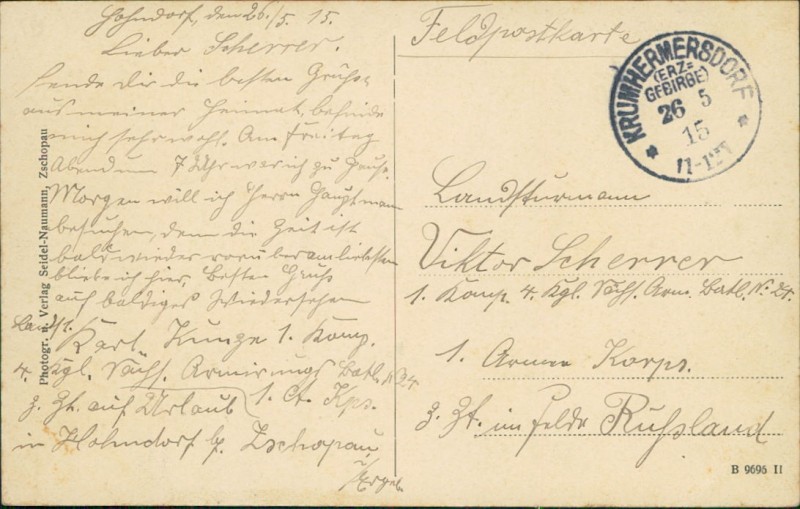 Hohndorf, den 26./5. 15.
Lieber Scherrer.
Sende Dir die besten Grüße
aus meiner Heimat, befinde
mich sehr wohl. Am Freitag
Abend um 7 Uhr war ich zu Hause.
Morgen will ich Herrn Hauptmann
besuchen, denn die Zeit ist
bald wieder vorüber am liebsten
bliebe ich hier, besten Gruß
auf baldiges Wiedersehen
Landst. Karl Kunze 1. Komp.
4. Kgl. Sächs. Armirungs Batl. N 24
z. Zt. auf Urlaub 1. A. Kps.
in Hohndorf b. Zschopau
i/Erzgeb.
Photogr. u. Verlag Seidel-Naumann, Zschopau
Feldpostkarte
KRUMHERMERSDORF
(ERZ=
GEBIRGE)
26 5
15
11-12V
Landsturmann
Viktor Scherrer
1. Komp. 4. Kgl. Sächs. Arm. Batl. N. 24.
1. Armee Korps.
z. Zt. im Felde Rußland
B 9696 II